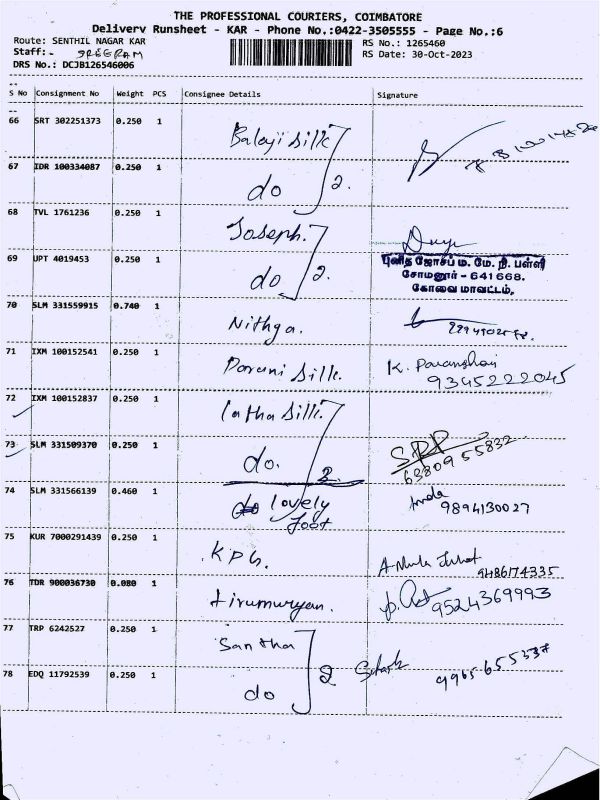 THE PROFESSIONAL COURIERS, COIMBATORE
Delivery Runsheet - KAR - Phone No.:0422-3505555 - Page No.:6
Route: SENTHIL NAGAR KAR
RS No.: 1265460
Staff:- SREERAM
RS Date: 30-Oct-2023
DRS No.: DCJB126546006
S No Consignment No Weight PCS Consignee Details Signature
66 SRT 302251373 0.250 1 Balaji Silk
67 IDR 100334087 0.250 1 do 2.
68 TVL 1761236 0.250 1 Joseph.
69 UPT 4019453 0.250 1 do 2.
புனித ஜோசப் ம. மே. நி. பள்ளி
சோமனூர் - 641 668.
கோவை மாவட்டம்.
70 SLM 331559915 0.740 1 Nithya.
71 IXM 100152541 0.250 1 Parani Silk. K.
9345222045
72 IXM 100152837 0.250 1 Latha Silk
73 SLM 331509370 0.250 1 do. 2. SRP
6380955832
74 SLM 331566139 0.460 1 do lovely
foot
9894130027
75 KUR 7000291439 0.250 1 KPG.
9486174335
76 TDR 900036730 0.080 1 tirumurugan. 9524369993
77 TRP 6242527 0.250 1 Santha
78 EDQ 11792539 0.250 1 do 2